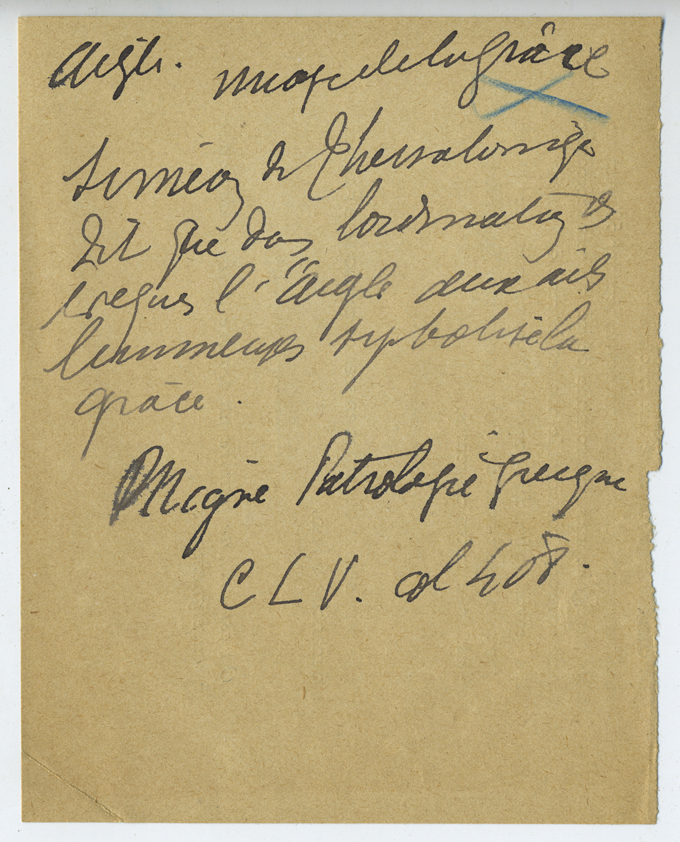 Aigle. image de la grâce
Siméon de Thessalonique
dit que dans l'ordination des
évêques l'Aigle aux ails
lumineuses symbolise la
grâce.
Migne Patrologie grecque
CLV. col 408.